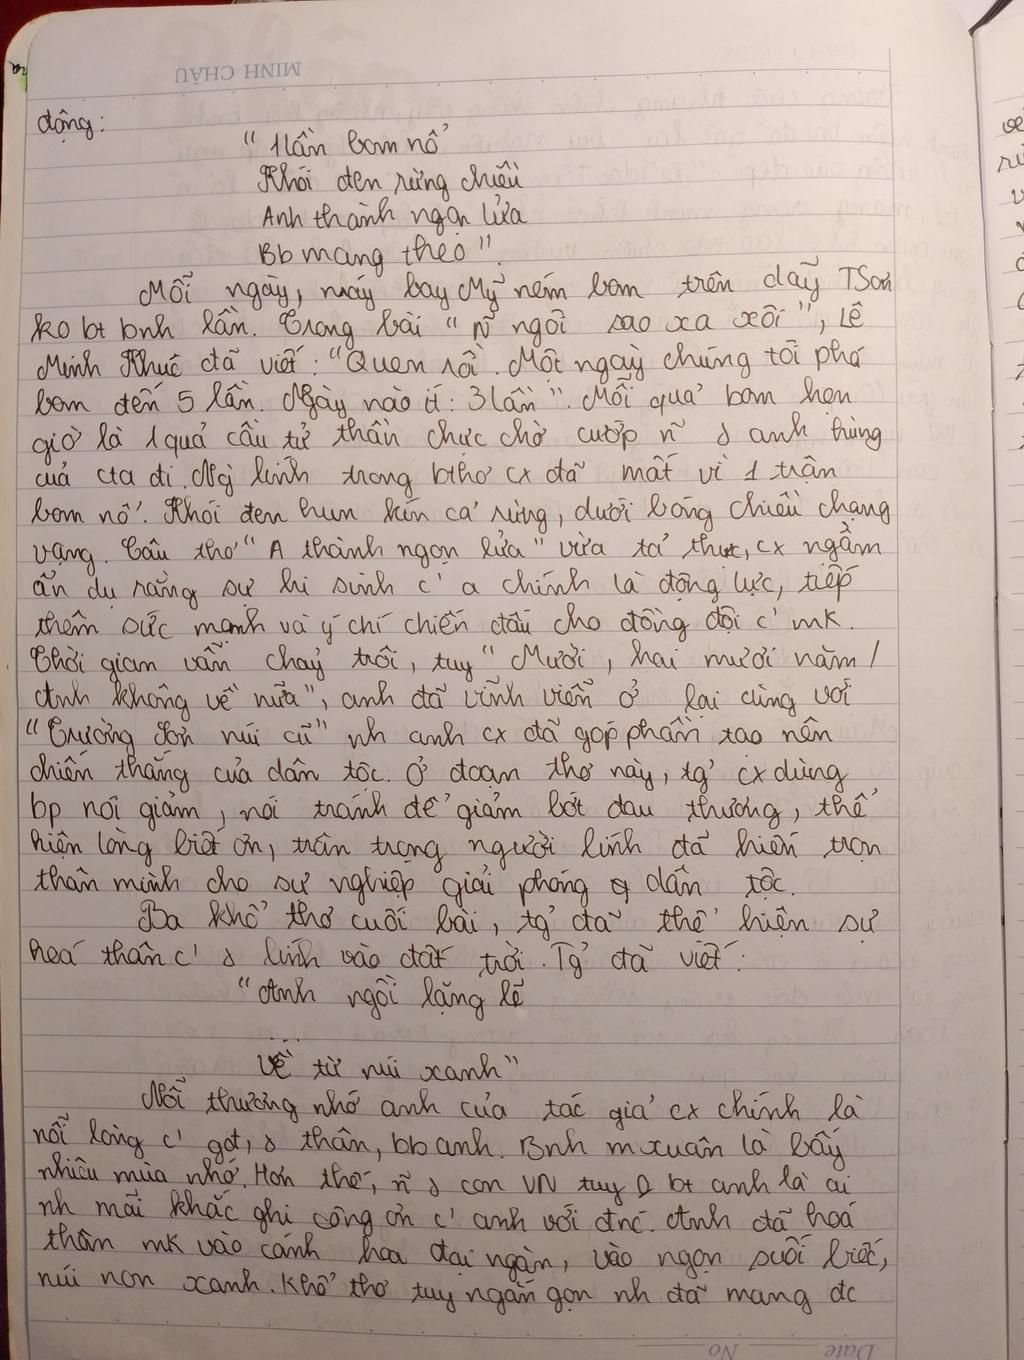 MINH CHÂU
động:
"1 lần bom nổ
Khói đen rừng chiều
Anh thành ngọn lửa
Bb mang theo".
Mỗi ngày, máy bay Mỹ ném bom trên dãy TSơn
ko bt bnh lần. Trong bài "ñ ngôi sao xa xôi", Lê
Minh Khuê đã viết: "Quen rồi. Một ngày chúng tôi phá
bom đến 5 lần. Ngày nào ít: 3 lần". Mỗi quả bom hẹn
giờ là 1 quả cầu tử thần chực chờ cướp ñ anh hùng
của cta đi. Ng lính trong bthơ cx đã mất vì 1 trận
bom nổ. Khói đen hun kín cả rừng, dưới bóng chiều chạng
vạng. Câu thơ "A thành ngọn lửa" vừa tả thực, cx ngầm
ẩn dụ rằng sự hi sinh c' a chính là động lực, tiếp
thêm sức mạnh và ý chí chiến đấu cho đồng đội c' mk.
Thời gian vẫn chảy trôi, tuy "Mười, hai mươi năm /
Anh không về nữa", anh đã vĩnh viễn ở lại cùng với
"Trường Sơn núi cũ" nh anh cx đã góp phần tạo nên
chiến thắng của dân tộc. Ở đoạn thơ này, tg' cx dùng
bp nói giảm, nói tránh để giảm bớt đau thương, thể
hiện lòng biết ơn, trân trọng người lính đã hiến trọn
thân mình cho sự nghiệp giải phóng dân tộc.
Ba khổ thơ cuối bài, tg' đã thể hiện sự
hoá thân c' lính vào đất trời. Tg' đã viết:
"Anh ngồi lặng lẽ
...
Về từ núi xanh"
Nỗi thương nhớ anh của tác giả cx chính là
nỗi lòng c' gđ, thân, bb anh. Bnh mxuân là bấy
nhiêu mùa nhớ. Hơn thế, ñ con VN tuy bt anh là ai
nh mãi khắc ghi công ơn c' anh với đnc. Anh đã hoá
thân mk vào cánh hoa đại ngàn, vào ngọn suối biếc,
núi non xanh. Khổ thơ tuy ngắn gọn nh đã mang đc
Date No